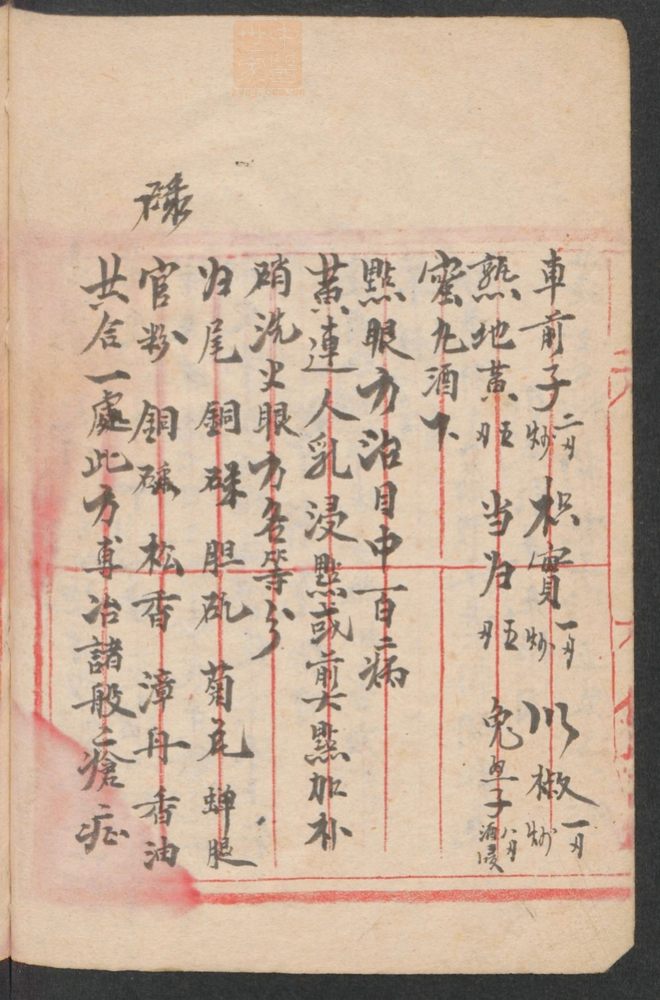 車前子二両炒 枳實一両炒 川椒一両炒
熟地黃両五 当归両五 兔絲子八両酒浸
蜜丸酒下
點眼方治目中一百二病
黃連人乳浸點或煎點加朴
硝洗火眼方各等分
归尾 銅碌 胆矾 菊花 蝉腿
官粉 銅碌 松香 漳丹 香油
共合一處此方專治諸般瘡症
碌